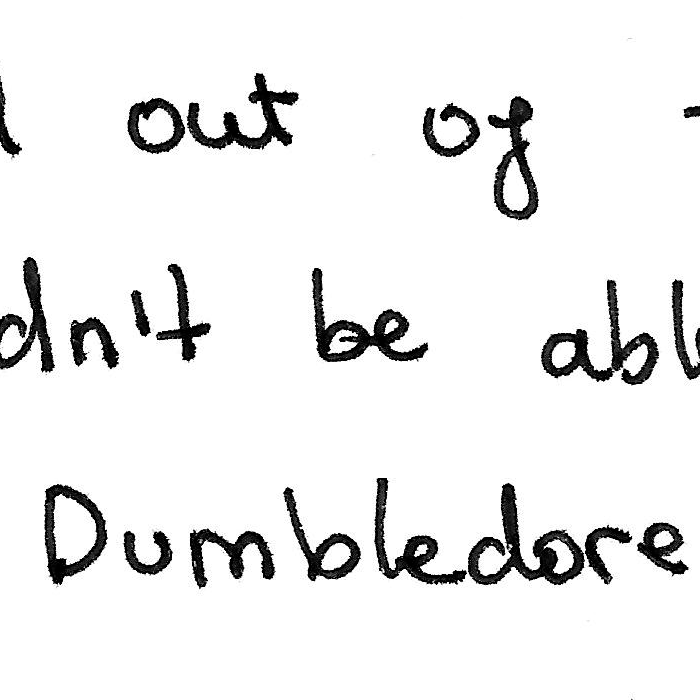 out of
dn't be abl
Dumbledore